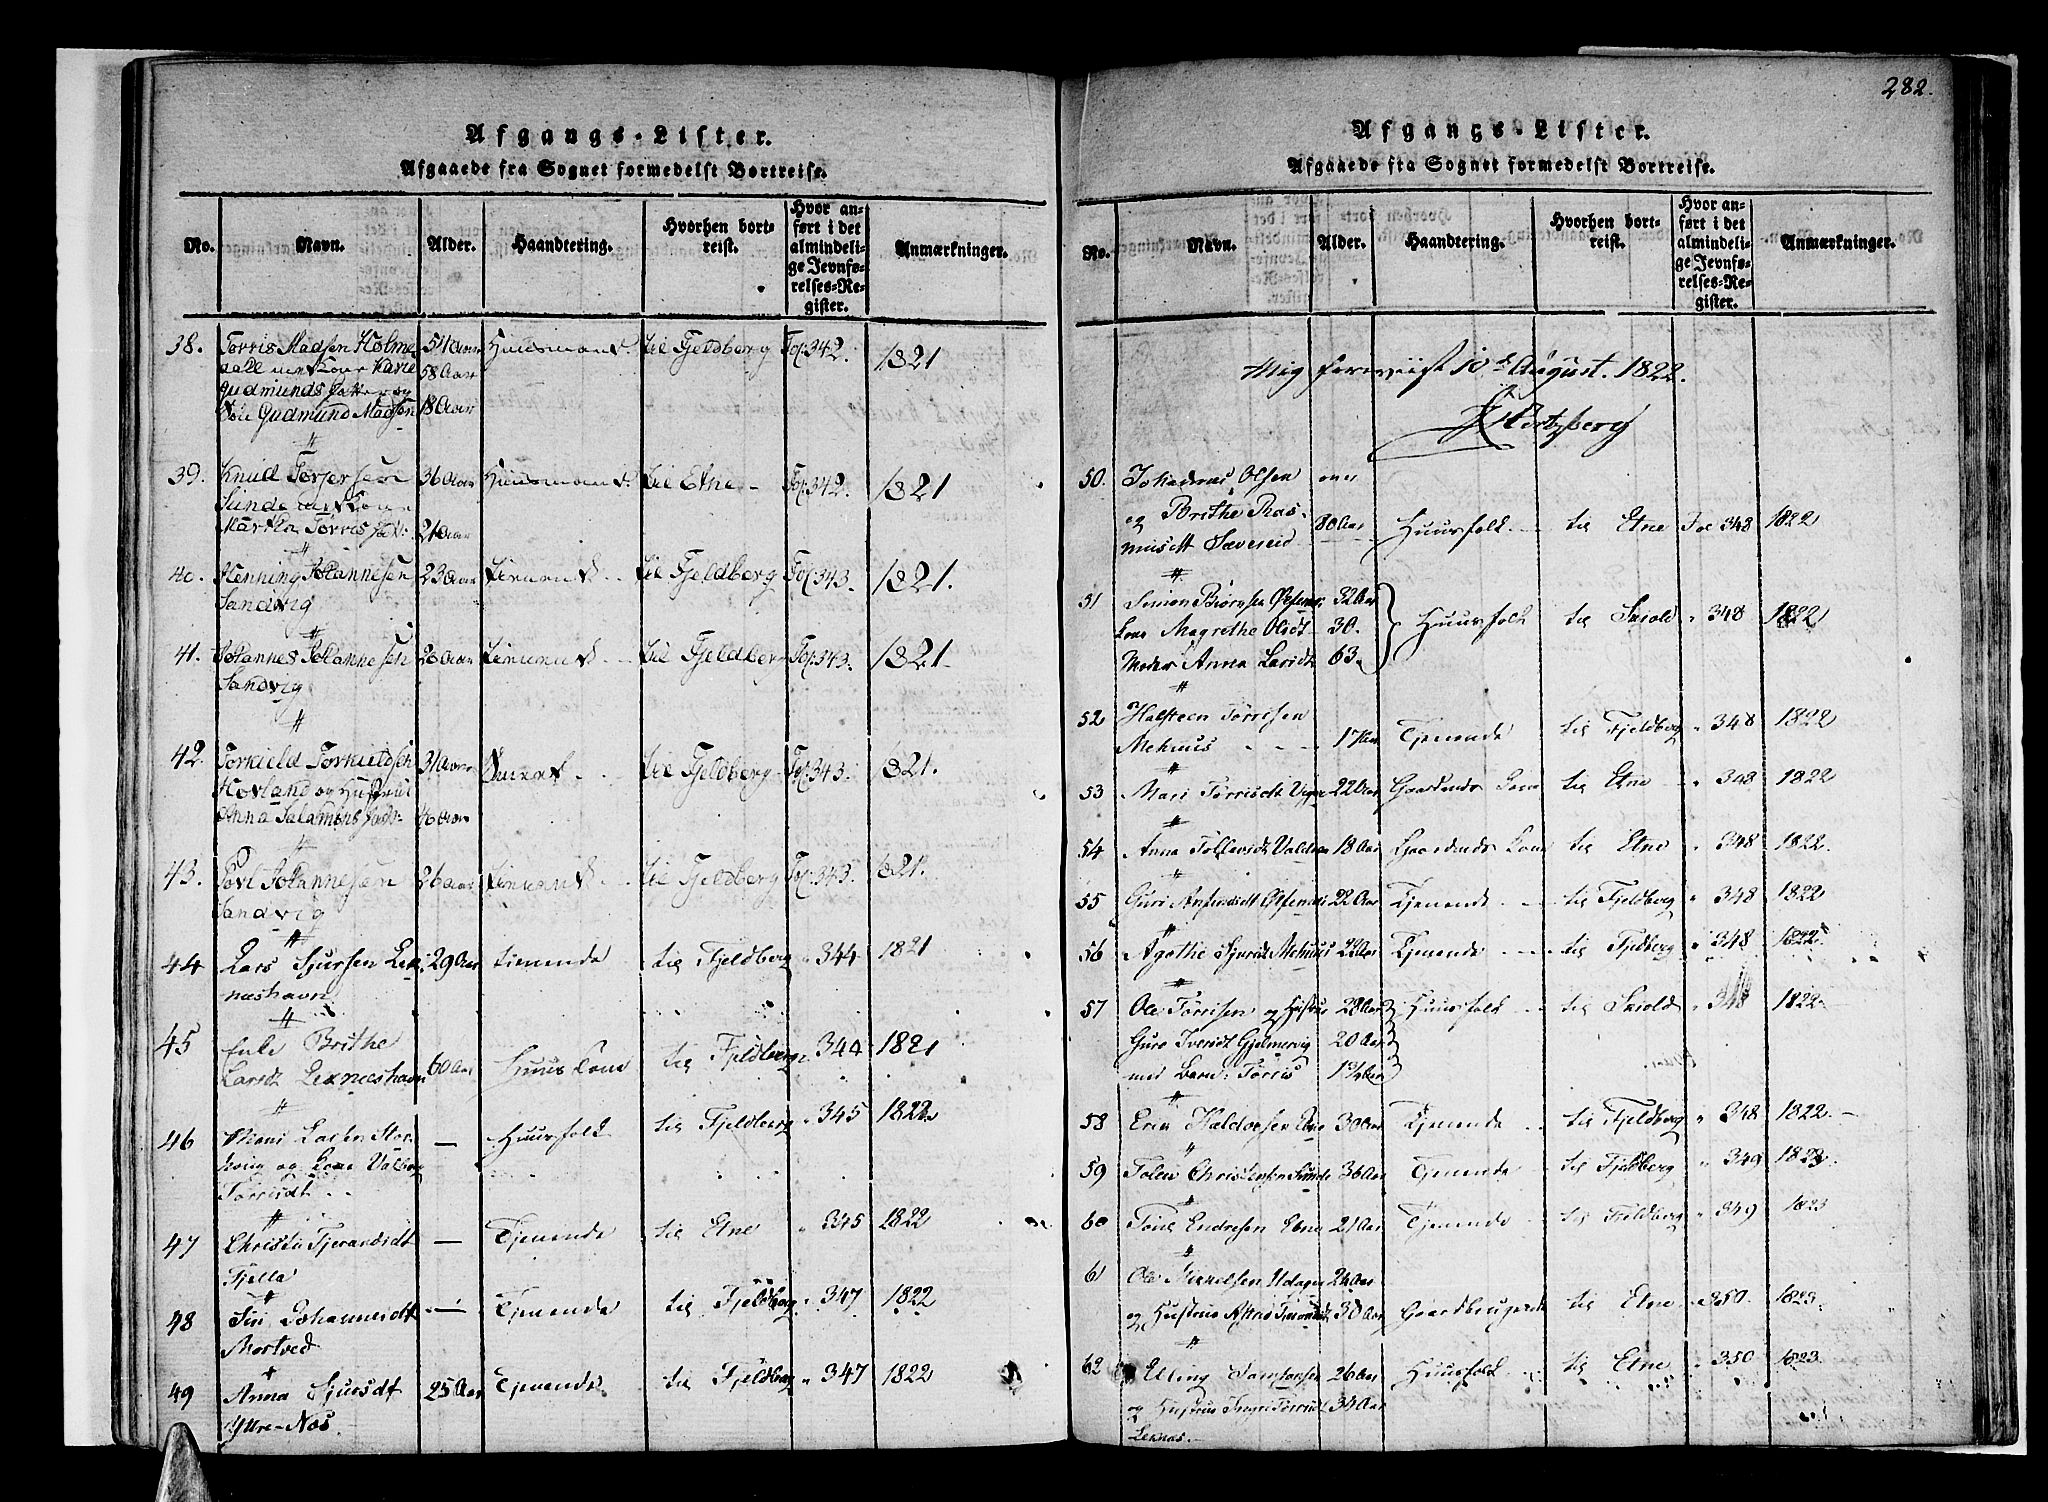 282.
Afgangs-Lister.
Afgaaede fra Sognet formedelst Bortreise.
No. Navn. Alder. Haandtering. Hvorhen bortreist. Hvor anført i det almindelige Jevnførelses-Register. Anmærkninger.
38. Torris Madsen Holme 54 Aar Huusmand. til Fjeldberg Fol. 342. 1821
dall med Kone Karie 58 Aar
Gudmunds Datter og
Søn Gudmund Madsen 18 Aar
39. Knud Torgersen 36 Aar Huusmand. til Etne - Fol. 342. 1821
Sunde med Kone
Martha Torris Dat: 21 Aar
40. Henning Johannesen 23 Aar til Fjeldberg Fol. 343. 1821.
Sandvig
41. Johannes Johannesen 20 Aar til Fjeldberg Fol. 343. 1821.
Sandvig
42. Torkield Torkieldsen 31 Aar til Fjeldberg Fol. 343. 1821.
Hovland og Hustrue
Anna Salamons Dat: 46 Aar
43. Povl Johannesen 26 Aar til Fjeldberg Fol. 343. 1821.
Sandvig
44 Lars Sjursen Lex 29 Aar tienende til Fjeldberg " 344 1821
næshavn
45 Enke Brithe
Larsdt Lexneshavn 60 Aar Huuskone til Fjeldberg " 344 1821
46 Mons Larsen Stor — Huusfolk til Fjeldberg " 345 1822
og Kone Valborg
Torrisdt
47 Christie Tjerandsdt — Tjenende til Etne " 345 1822
Fjelle
48 Siri Johannesdt — Tjenende til Fjeldberg " 347 1822
Mortved
49 Anna Sjursdt 25 Aar Tjenende til Fjeldberg " 347 1822
Yttre-Næs.
Afgangs-Lister.
Afgaaede fra Sognet formedelst Bortreise.
No. Navn. Alder. Haandtering. Hvorhen bortreist. Hvor anført i det almindelige Jevnførelses-Register. Anmærkninger.
Mig foreviist 10de August. 1822.
Hertzberg
50. Johannes Olsen over
og Brithe Ras-
musdt Sævereid 80 Aar Huusfolk til Etne Fol 348 1822
51 Simon Biørnsen 32 Aar
Kone Magrethe Olsdt 30. Huusfolk til Skiold " 348 1822
Moder Anna Larsdt 63.
52 Halsteen Torrisen
Mehuus 17 Aar Tjenende til Fjeldberg " 348 1822
53 Mari Torrisdt 22 Aar Gaardmands Kone til Etne " 348 1822
54 Anna Tollevsdt 18 Aar Gaardmands Kone til Etne " 348 1822.
55 Guri 22 Aar Tjenende til Fjeldberg " 348 1822
56 Agathe Sjursdt Mehuus 22 Aar Tjenende til Fjeldberg " 348 1822
57 Ole Torrisen og Hustrue 28 Aar Huusfolk til Skiold " 348 1822
Guro Iversdt Gjelmervig 20 Aar
med Barn: Torris 1 3/4 Aar
58 Erik Haldorsen Etne 30 Aar Tjenende til Fjeldberg " 348 1822.
59 Christensen Sunde 36 Aar Tjenende til Fjeldberg " 349 1823
60 Endresen Etne 21 Aar Tjenende til Fjeldberg " 349 1823
61 Ole Mikkelsen 24 Aar
og Hustrue 30 Aar Gaardbrugende til Etne 350. 1823.
62 Elling 26 Aar Huusfolk til Etne " 350 1823.
og Hustrue Torrisdt 34 Aar
Lexnæs.